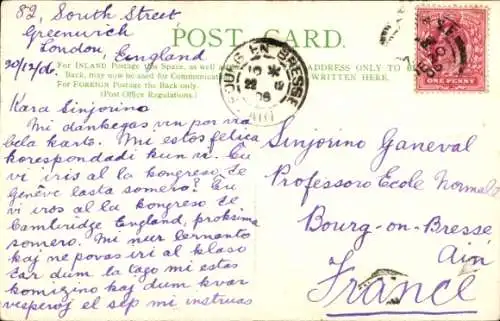 82, South Street
Greenwich
London, England
20/12/06.
POST CARD.
For INLAND Postage this Space, as well as the
Back, may now be used for Communication.
For FOREIGN Postage the Back only.
(Post Office Regulations.)
ADDRESS ONLY TO BE
WRITTEN HERE.
BOURG-EN-BRESSE
AIN
POSTAGE
ONE PENNY
Kara Sinjorino
Mi dankegas vin por via
bela karto. Mi estos feliĉa
korespondadi kun vi. Ĉu
vi iris al la kongreso de
Genève lasta somero? Ĉu
vi iros al la kongreso de
Cambridge England, proksima
somero. Mi nur lernanto
kaj ne povas iri al klaso
ĉar dum la tago mi estas
komizino kaj dum kvar
vesperoj el sep mi instruas
Sinjorino Ganeval
Professoro Ecole Normale
Bourg-en-Bresse
Ain
France